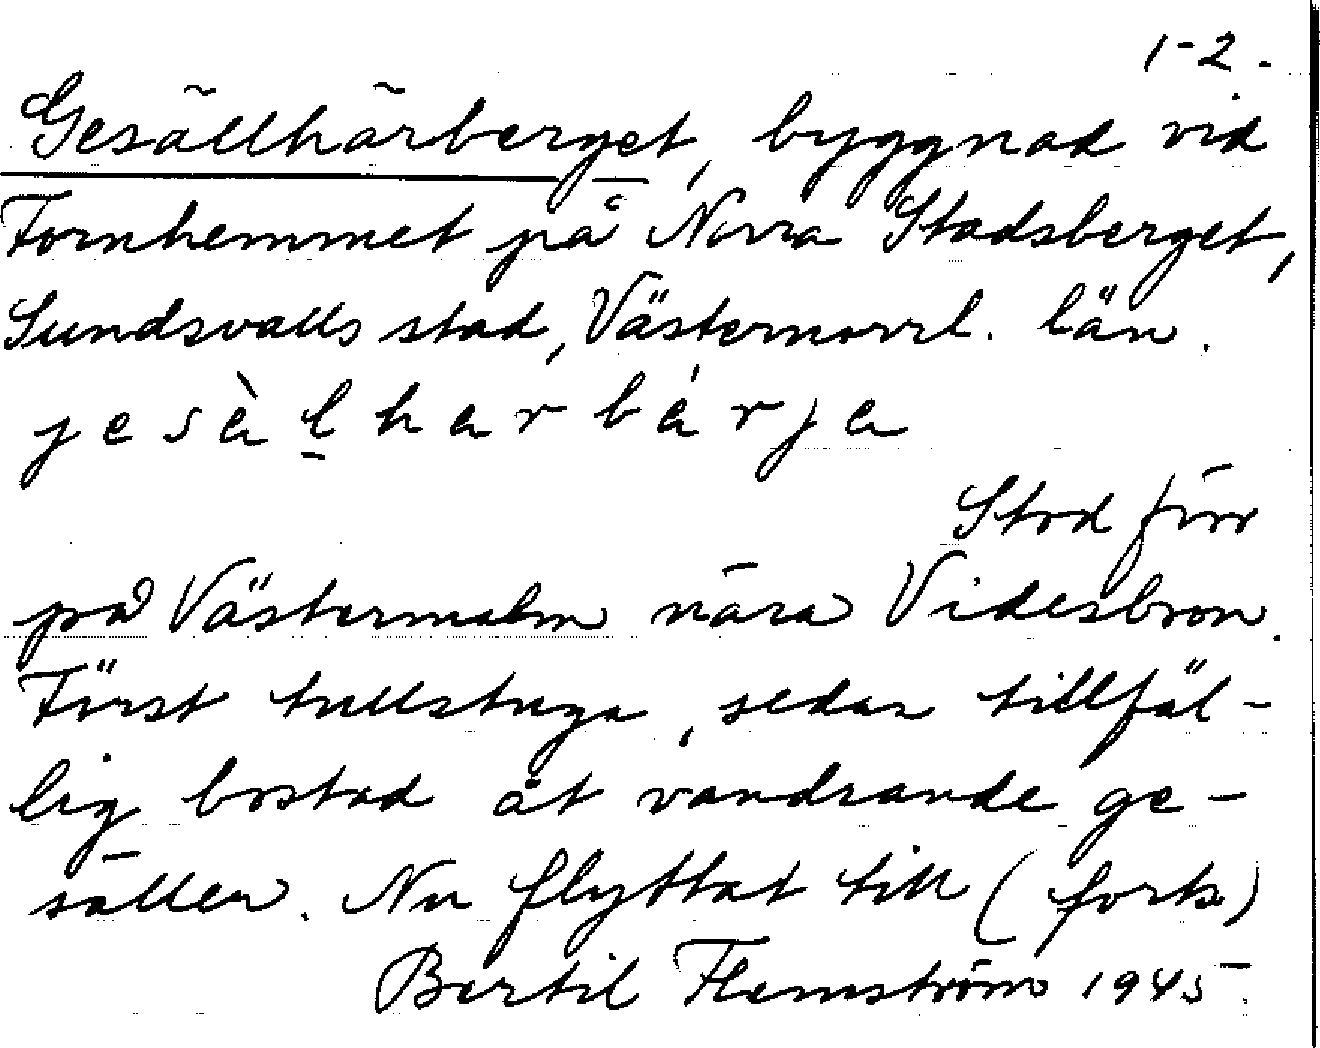 1-2.
Gesällhärberget, byggnad vid
Fornhemmet på Norra Stadsberget,
Sundsvalls stad, Västernorrl. län.
jesàl̲harbárja
Stod förr
på Västermalm nära Videsbron.
Först tullstuga, sedan tillfäl-
lig bostad åt vandrande ge-
säller. Nu flyttat till (forts)
Bertil Flemström 1945